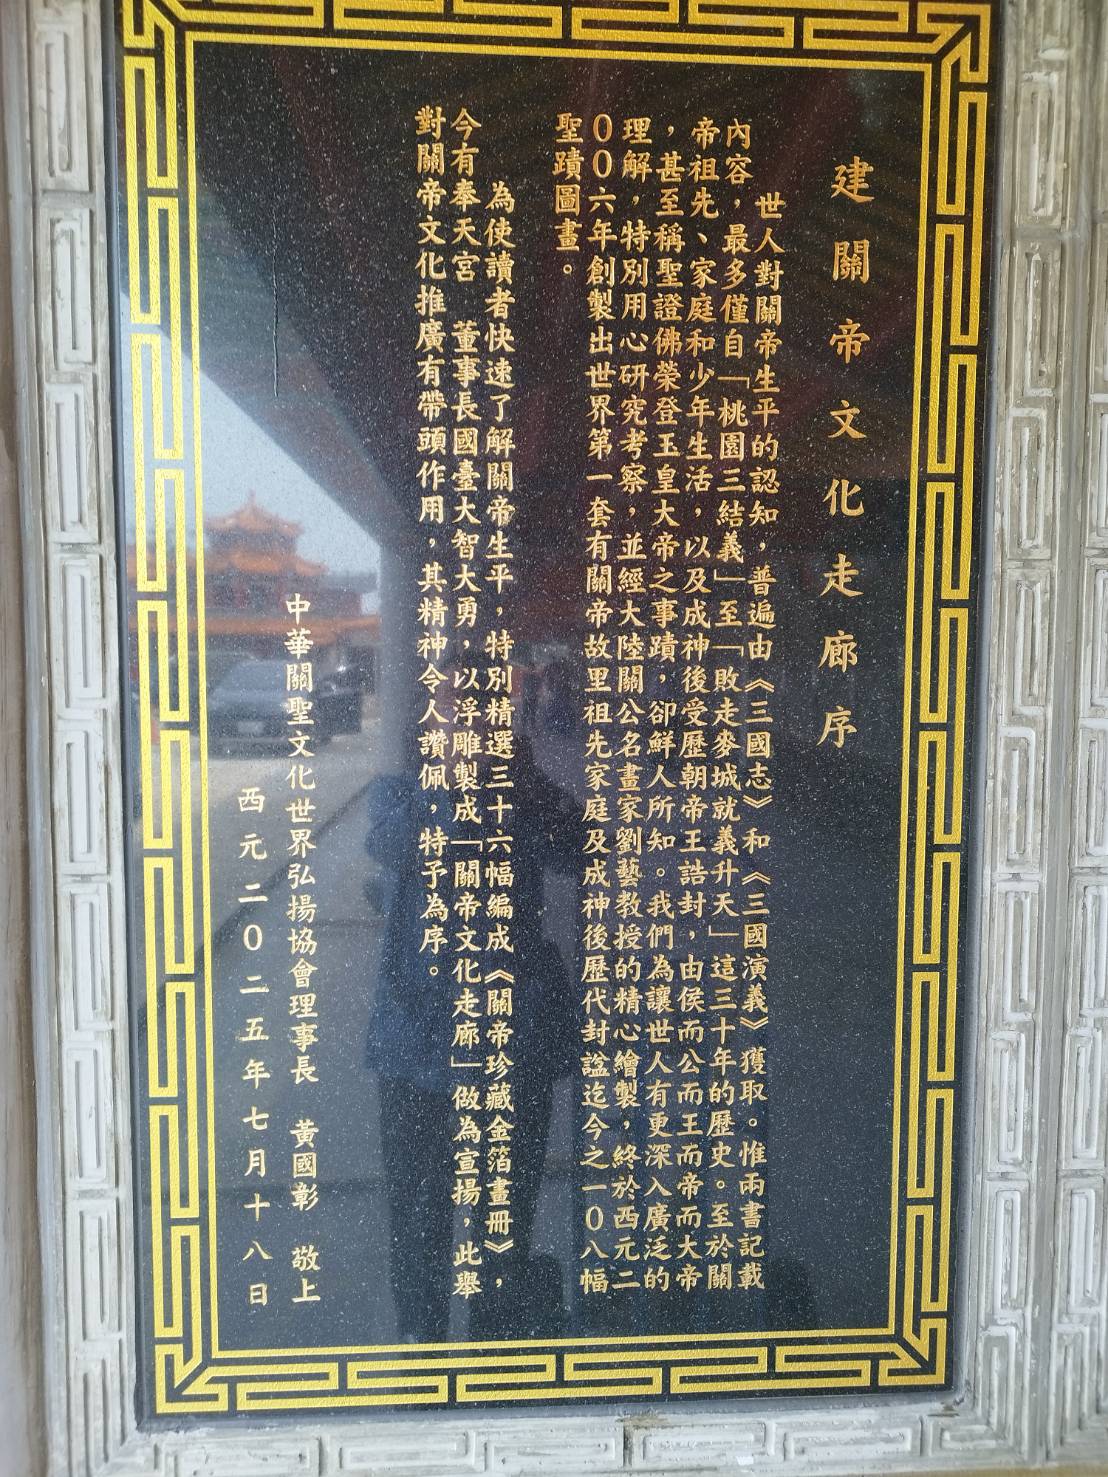 建關帝文化走廊序
世人對關帝生平的認知，普遍由《三國志》和《三國演義》獲取。惟兩書記載
內容，最多僅自「桃園三結義」至「敗走麥城就義升天」這三十年的歷史。至於關
帝祖先、家庭和少年生活，以及成神後受歷朝帝王誥封，由侯而公而王而帝而大帝
，甚至稱聖證佛榮登玉皇大帝之事蹟，卻鮮人所知。我們為讓世人有更深入廣泛的
理解，特別用心研究考察，並經大陸關公名畫家劉藝教授的精心繪製，終於西元二
００六年創製出世界第一套有關帝故里祖先家庭及成神後歷代封謚迄今之一０八幅
聖蹟圖畫。
為使讀者快速了解關帝生平，特別精選三十六幅編成《關帝珍藏金箔畫冊》，
今有奉天宮　董事長國臺大智大勇，以浮雕製成「關帝文化走廊」做為宣揚，此舉
對關帝文化推廣有帶頭作用，其精神令人讚佩，特予為序。
中華關聖文化世界弘揚協會理事長　黃國彰　敬上
西元二０二五年七月十八日